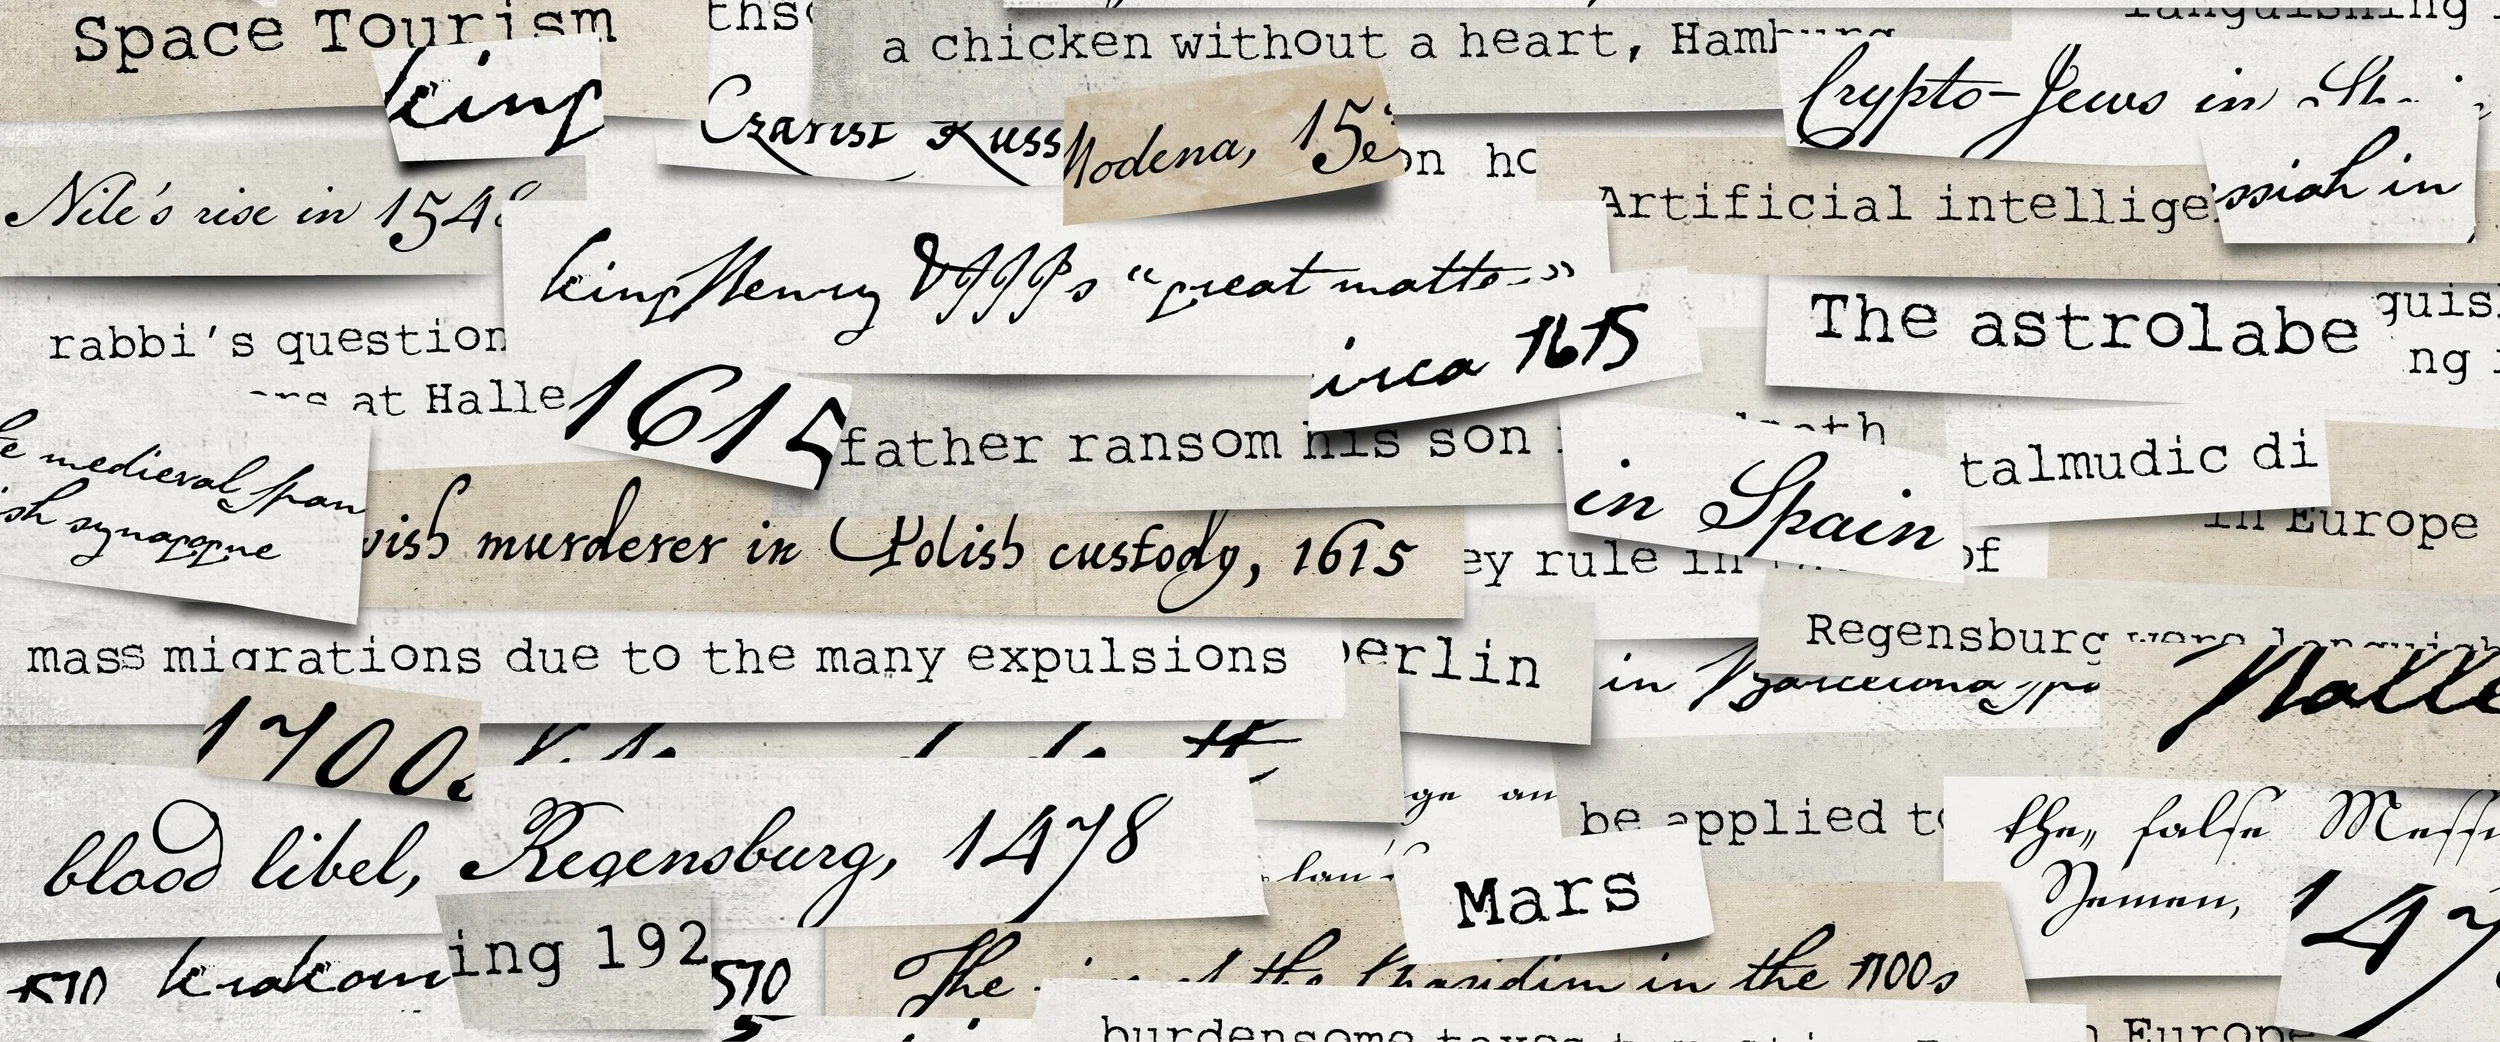 Space Tourism
king
a chicken without a heart, Hamburg
Czarist Russ
Modena, 15
on ho
Crypto-Jews in
ssiah in
Nile's rise in 1548
Artificial intellige
king Henry VIII's "great matter"
The astrolabe
guish
ng
rabbi's question
at Halle
1615
circa 1615
father ransom his son
in Spain
talmudic di
in Europe
e medieval Span
ish synagogue
wish murderer in Polish custody, 1615
ey rule in
of
mass migrations due to the many expulsions
berlin
in Barcelona, Spa
Regensburg were languish
Halle
1700s
blood libel, Regensburg, 1478
ge an
be applied to
the, false Messi
Yemen,
Mars
147
1570 krakow
ing 192
570
The rise of the Chasidim in the 1700s
burdensome taxes
n Europe